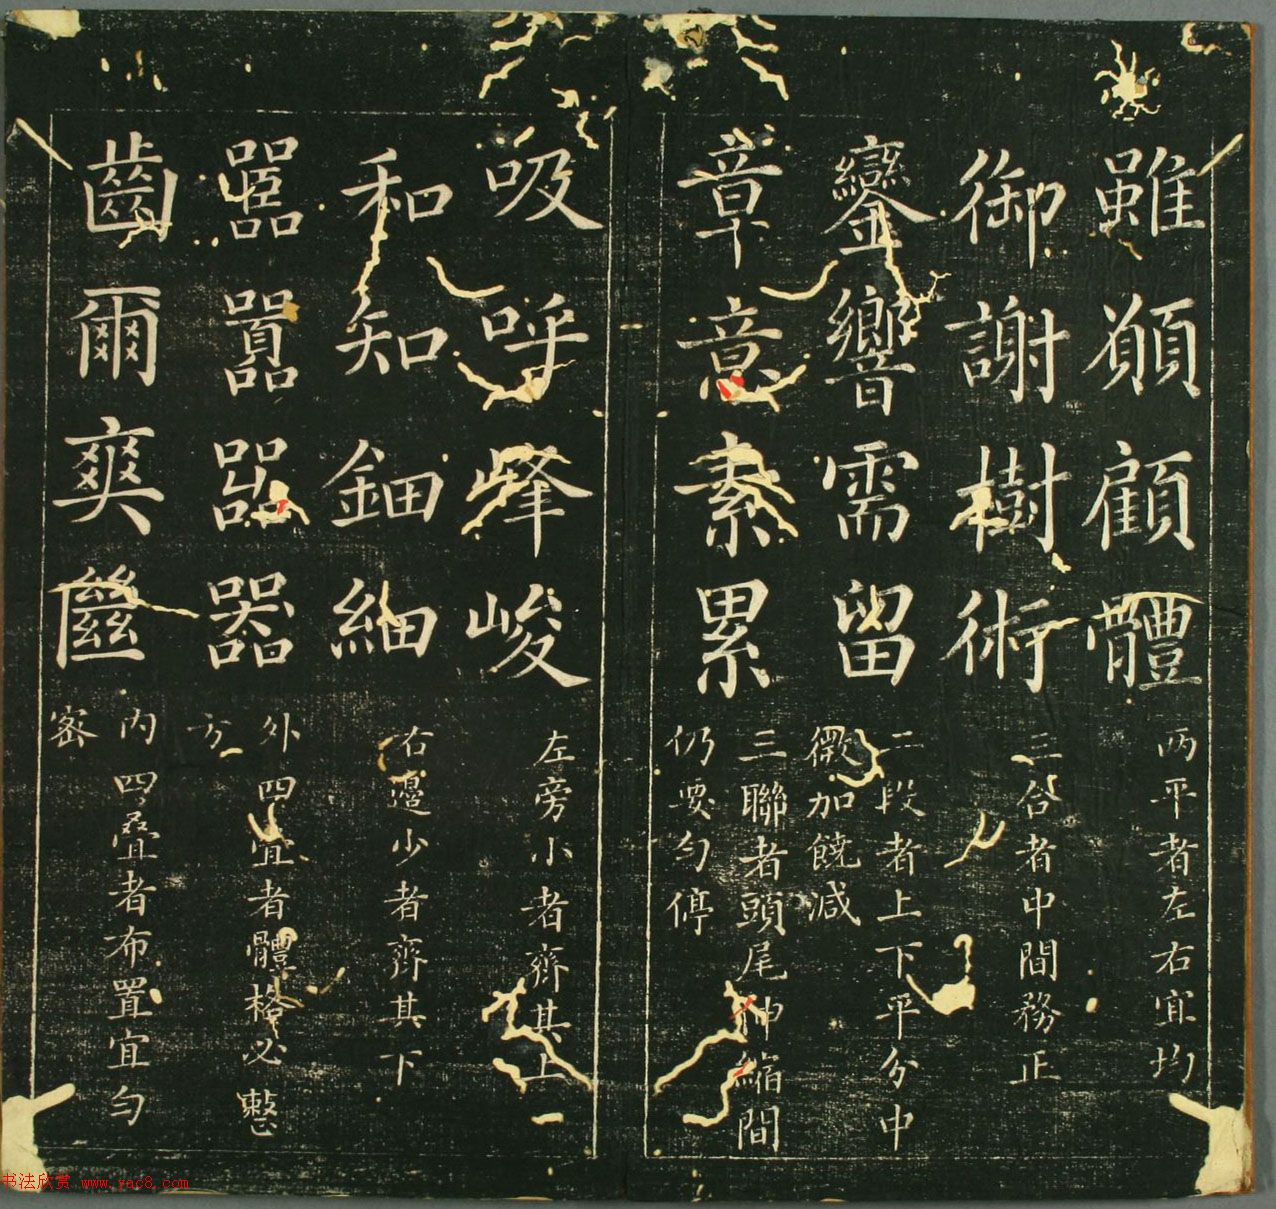 雖顅顧體
兩平者左右宜均
御謝樹術
三合者中間務正
鑾響需留
二段者上下平分中
微加饒減
章意素累
三聯者頭尾伸縮間
仍要勻停
吸呼峰峻
左旁小者齊其上
和知鈿細
右邊少者齊其下
嚚囂㗊器
外四宜者體格必整
方
齒爾爽㘒
内四叠者布置宜勻
密
书法欣赏 www.yac8.com